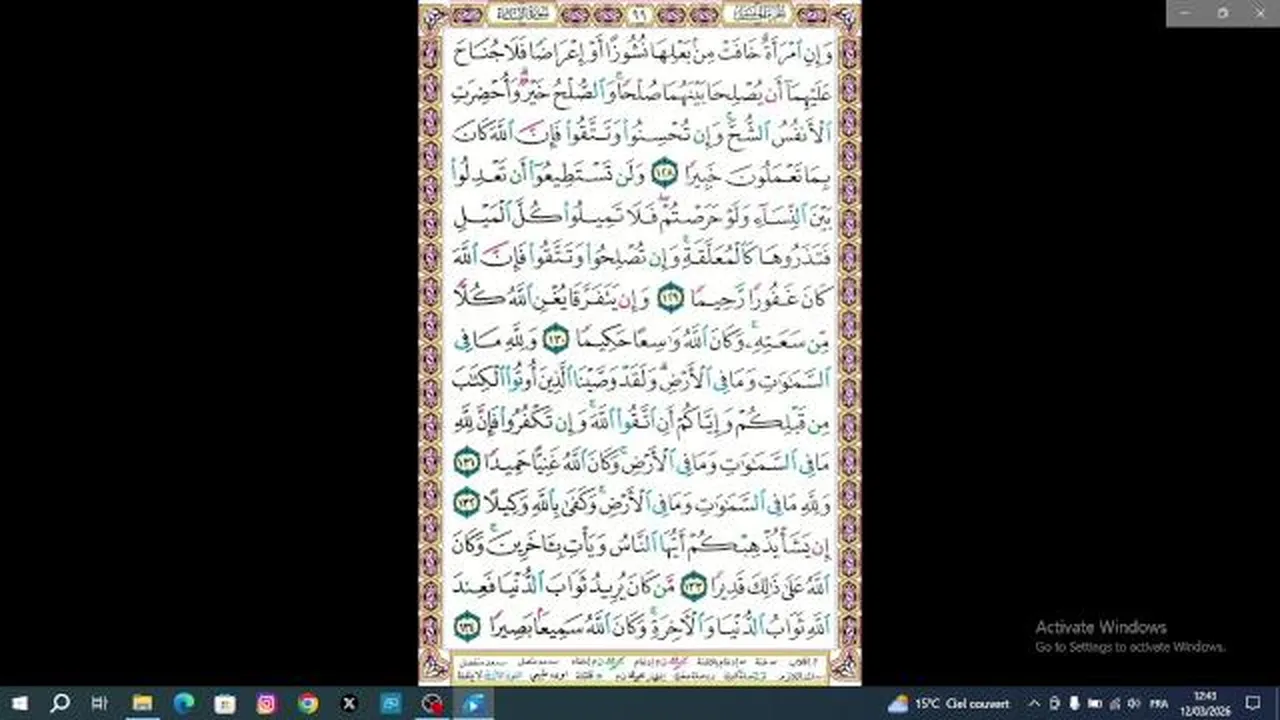 سورة النساء ٩٩ الجزء الخامس
وَإِنِ ٱمْرَأَةٌ خَافَتْ مِنۢ بَعْلِهَا نُشُوزًا أَوْ إِعْرَاضًا فَلَا جُنَاحَ
عَلَيْهِمَآ أَن يُصْلِحَا بَيْنَهُمَا صُلْحًاۚ وَٱلصُّلْحُ خَيْرٌۗ وَأُحْضِرَتِ
ٱلْأَنفُسُ ٱلشُّحَّۚ وَإِن تُحْسِنُوا۟ وَتَتَّقُوا۟ فَإِنَّ ٱللَّهَ كَانَ
بِمَا تَعْمَلُونَ خَبِيرًا ١٢٨ وَلَن تَسْتَطِيعُوٓا۟ أَن تَعْدِلُوا۟
بَيْنَ ٱلنِّسَآءِ وَلَوْ حَرَصْتُمْۖ فَلَا تَمِيلُوا۟ كُلَّ ٱلْمَيْلِ
فَتَذَرُوهَا كَٱلْمُعَلَّقَةِۚ وَإِن تُصْلِحُوا۟ وَتَتَّقُوا۟ فَإِنَّ ٱللَّهَ
كَانَ غَفُورًا رَّحِيمًا ١٢٩ وَإِن يَتَفَرَّقَا يُغْنِ ٱللَّهُ كُلًّا
مِّن سَعَتِهِۦۚ وَكَانَ ٱللَّهُ وَٰسِعًا حَكِيمًا ١٣٠ وَلِلَّهِ مَا فِى
ٱلسَّمَٰوَٰتِ وَمَا فِى ٱلْأَرْضِۗ وَلَقَدْ وَصَّيْنَا ٱلَّذِينَ أُوتُوا۟ ٱلْكِتَٰبَ
مِن قَبْلِكُمْ وَإِيَّاكُمْ أَنِ ٱتَّقُوا۟ ٱللَّهَۚ وَإِن تَكْفُرُوا۟ فَإِنَّ لِلَّهِ
مَا فِى ٱلسَّمَٰوَٰتِ وَمَا فِى ٱلْأَرْضِۚ وَكَانَ ٱللَّهُ غَنِيًّا حَمِيدًا ١٣١
وَلِلَّهِ مَا فِى ٱلسَّمَٰوَٰتِ وَمَا فِى ٱلْأَرْضِۚ وَكَفَىٰ بِٱللَّهِ وَكِيلًا ١٣٢
إِن يَشَأْ يُذْهِبْكُمْ أَيُّهَا ٱلنَّاسُ وَيَأْتِ بِـَٔاخَرِينَۚ وَكَانَ
ٱللَّهُ عَلَىٰ ذَٰلِكَ قَدِيرًا ١٣٣ مَّن كَانَ يُرِيدُ ثَوَابَ ٱلدُّنْيَا فَعِندَ
ٱللَّهِ ثَوَابُ ٱلدُّنْيَا وَٱلْءَاخِرَةِۚ وَكَانَ ٱللَّهُ سَمِيعًۢا بَصِيرًا ١٣٤
Activate Windows
Go to Settings to activate Windows.
15°C Ciel couvert
FRA
12:43
12/03/2026